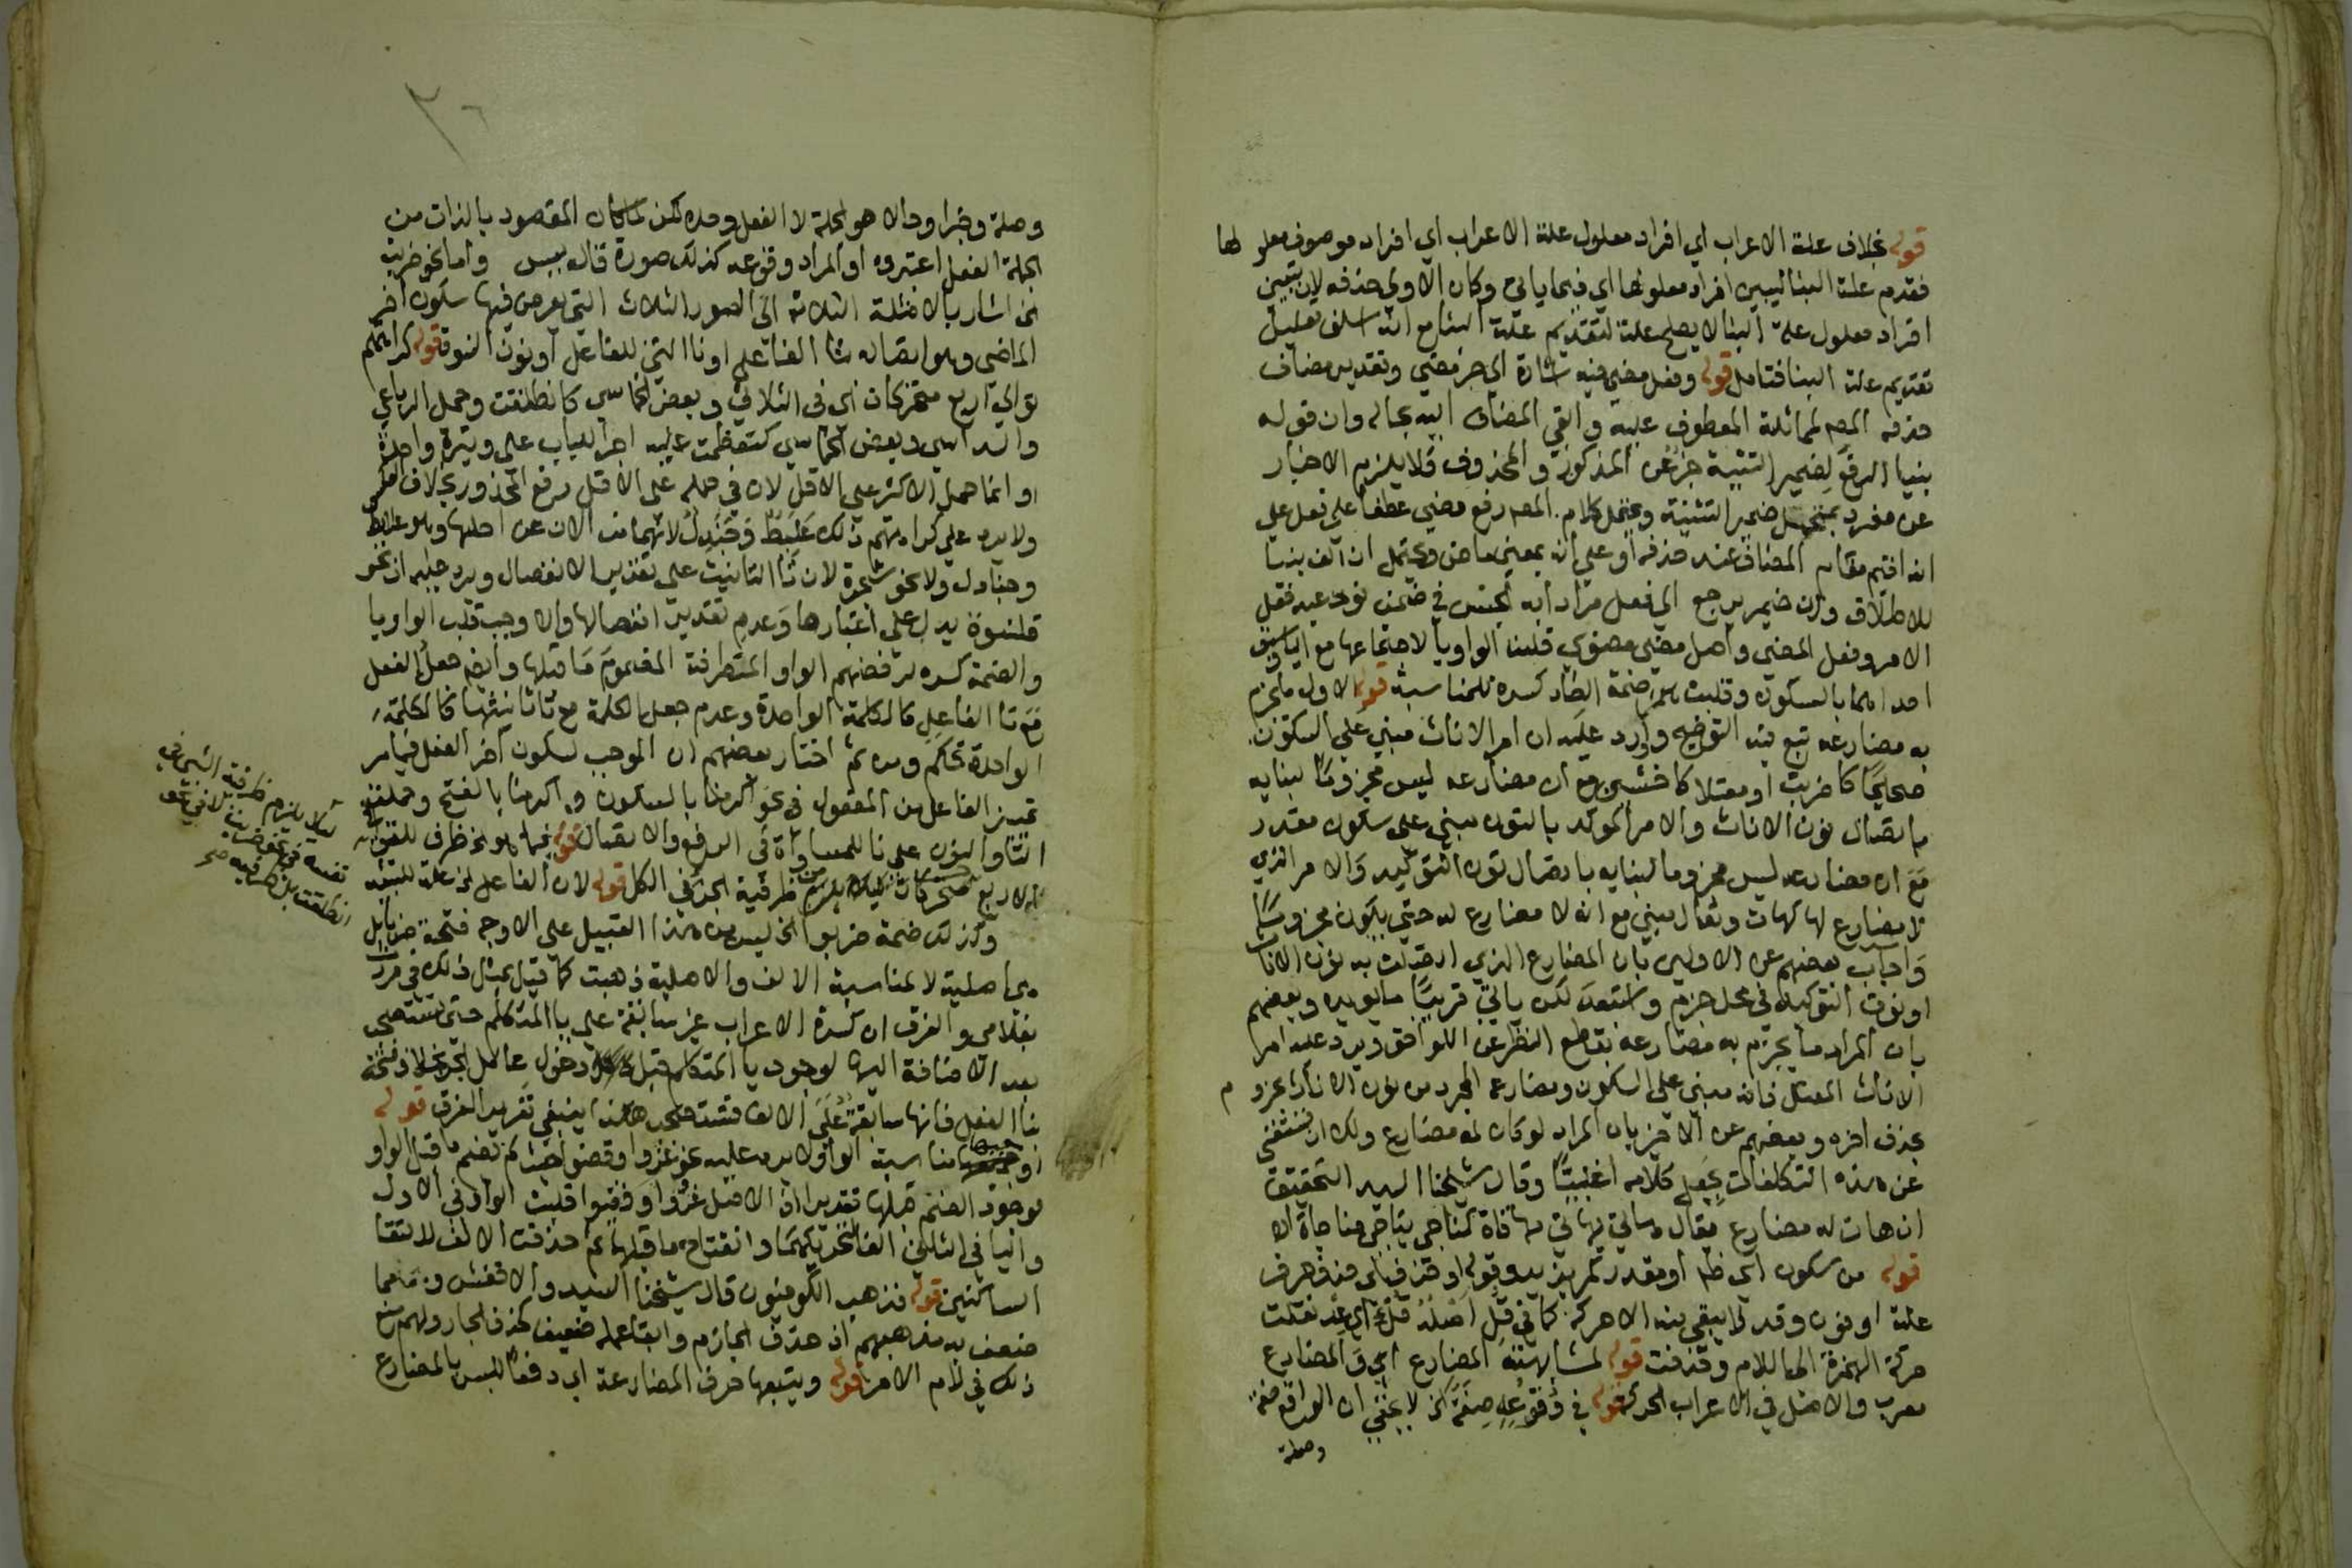 قوله بخلاف علة الاعراب اي افراد معلول علة الاعراب اي افراد موصوف معلولها
فقدم علة البنا ليبين افراد معلولها اي فيما ياتي وكان الاولى حذفه لان تبيين
افراد معلول علة البنا لا يصلح علة لتقديم علة البنا مع انه اسلف تعليل
تقديم علة البنا فتامل قوله وفعل مضى فيه اشارة الى جر مضى وتقدير مضاف
حذفه المصـ لمماثلة المعطوف عليه وابقى المضاف اليه بحاله وان قوله
بنيا الرفع لضمير التثنية خبر عن المذكور والمحذوف فلا يلزم الاخبار
عن مفرد بمتحمل ضمير التثنية ويحتمل كلام المصـ رفع مضى عطفا على فعل على
انه اقيم مقام المضاف عند حذفه او على انه بمعنى ماض ويحتمل ان الف بنيا
للاطلاق وان ضميره يرجع الى فعل مرادا به الجنس في ضمن نوعيه فعل
الامر وفعل المضي واصل مضي مضوي قلبت الواو يا لاجتماعها مع اليا وسبق
احداهما بالسكون وقلبت ضمة الضاد كسرة للمناسبة قوله الاول ما يجزم
به مضارعه تبع فيه التوضيح واورد عليه ان امر الاناث مبني على السكون
صحيحا كاضربن او معتلا كاخشين مع ان مضارعه ليس مجزوما لبنايه
باتصال نون الاناث والامر المؤكد بالنون مبني على سكون مقدر
مع ان مضارعه ليس مجزوما لبنايه باتصال نون التوكيد والامر الذي
لا مضارع له كهات وتعال مبني مع انه لا مضارع له حتى يكون مجزوما
واجاب بعضهم عن الاولين بان المضارع الذي اتصلت به نون الاناث
او نون التوكيد في محل جزم واستبعد لكن ياتي قريبا ما يؤيده وبعضهم
بان المراد ما يجزم به مضارعه بقطع النظر عن اللواحق ويرد عليه امر
الاناث المعتل فانه مبني على السكون ومضارعه المجرد من نون الاناث مجزوم
بحذف اخره وبعضهم عن الاخير بان المراد لو كان له مضارع ولك ان تستغني
عن هذه التكلفات بجعل كلامه اغلبيا وقال شيخنا السيد التحقيق
ان هات له مضارع يقال هاتى يهاتي مهاتاة كناجى يناجي مناجاة اه
قوله من سكون اي ظاهر او مقدر وقوله او حذف اي حذف حرف
علة او نون وقد لا يبقى منه الا حركة كما في قل
حركة الهمزة الى اللام وحذفت قوله لمشابهته المضارع اي والمضارع
معرب والاصل في الاعراب الحركة قوله في وقوعه صفة الخ لا يخفى ان الواقع صفة
وصلة
٢٦
وصلة وخبرا وحالا هو الجملة لا الفعل وحده لكن لما كان المقصود بالذات من
الجملة الفعل اعتبروه او المراد وقوعه كذلك صورة قاله يس واما نحو ضربت
الخ اشار بالامثلة الثلاثة الى الصور الثلاث التي يعرض فيها سكون اخر
الماضي وهو اتصاله بتا الفاعل او نا التي للفاعل او نون النسوة قوله كراهتهم
توالي اربع متحركات اي في الثلاثي وبعض الخماسي كانطلقت وحمل الرباعي
والسداسي وبعض الخماسي كتعظمت عليه اجراء للباب على وتيرة واحدة
وانما حمل الاكثر على الاقل لان في حمله على الاقل دفع المحذور بخلاف العكس
ولا يرد على كراهتهم ذلك علبط وجندل لانهما مزالان عن اصلهما وهو علابط
وجنادل ولا نحو شجرة لان تا التانيث على تقدير الانفصال ويرد عليه ان نحو
قلنسوة يدل على اعتبارها وعدم تقدير انفصالها والا وجب قلب الواو يا
والضمة كسرة لرفضهم الواو المتطرفة المضموم ما قبلها وايضا جعل الفعل
مع تا الفاعل كالكلمة الواحدة وعدم جعل الكلمة مع تا تانيثها كالكلمة
الواحدة تحكم ومن ثم اختار بعضهم ان الموجب لسكون آخر الفعل فيما مر
تمييز الفاعل من المفعول في نحو اكرمنا بالسكون واكرمنا بالفتح وحملت
التا والنون على نا للمساواة في الرفع والاتصال قوله فيما هو الخ ظرف لتوالي
الاربع متحركات ظرفية الجزء في الكل قوله لان الفاعل الخ علة
وكذلك ضمة ضربوا الخ ليس من هذا القبيل على الاوجه فتحة ضربا بل
هي اصلية لا لمناسبة الالف والاصلية ذهبت كما قيل بمثل ذلك في مررت
بغلامي والفرق ان كسرة الاعراب غير سابقة على يا المتكلم حتى تستصحب
بعد الاضافة اليها لوجود يا المتكلم قبل دخول عامل الجر بخلاف فتحة
بنا الفعل فانها سابقة على الالف فتستصحب هكذا ينبغي تقرير الفرق قوله
مناسبة الواو لا يرد عليه نحو غزوا وقضوا حيث لم تضم ما قبل الواو
لوجود الضم قبلها تقديرا اذ الاصل غزووا وقضيوا قلبت الواو في الاول
واليا في الثاني الفا لتحركهما وانفتاح ما قبلهما ثم حذفت الالف لالتقا
الساكنين قوله فذهب الكوفيون قال شيخنا السيد والاخفش
ضعف مذهبهم ان حذف الجازم وابقا عمله ضعيف كحذف الجار ولهم منع
ذلك في لام الامر قوله ويتبعها حرف المضارعة اي دفعا للبس بالمضارع
ليلا يلزم ظرفية الشي في